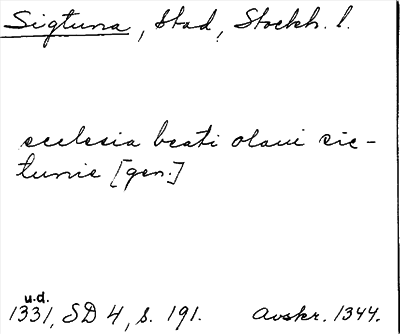 Sigtuna, Stad, Stockh. l.
ecclesia beati olaui sic-
tunie [gen.]
u.d.
1331, SD 4, s. 191. Avskr. 1344.